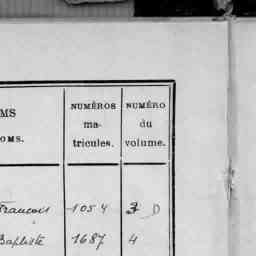 MS NUMÉROS NUMÉRO
ma- du
OMS. tricules. volume.
François 1054 3 D
Baptiste 1687 4